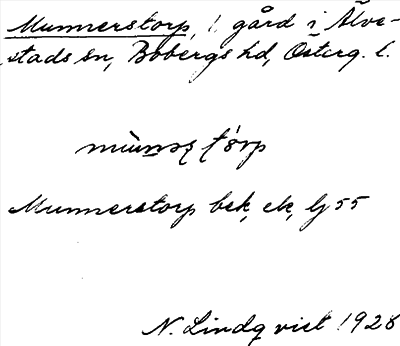 Munnerstorp, 1 gård i Älve-
stads sn, Bobergs hd, Österg. l.
Munnerstorp bek, ek, lj 55
N. Lindqvist 1928